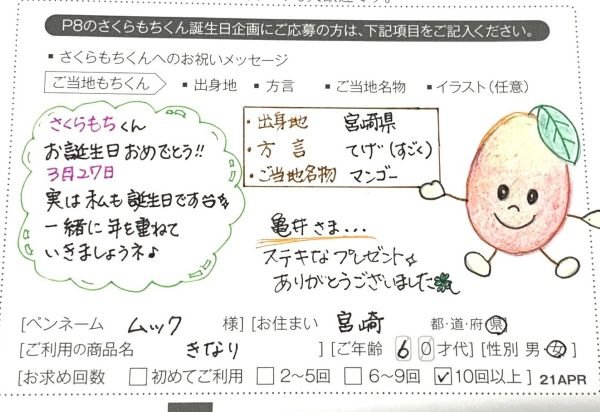 P8のさくらもちくん誕生日企画にご応募の方は、下記項目をご記入ください。
▪ さくらもちくんへのお祝いメッセージ
ご当地もちくん ▪ 出身地 ▪ 方言 ▪ ご当地名物 ▪ イラスト(任意)
さくらもちくん
お誕生日おめでとう!!
3月27日
実は私も誕生日です
一緒に年を重ねて
いきましょうネ♪
・出身地 宮崎県
・方言 てげ(すごく)
・ご当地名物 マンゴー
亀井さま...
ステキなプレゼント
ありがとうございました
[ペンネーム ムック 様] [お住まい 宮崎 都・道・府・県]
[ご利用の商品名 きなり ] [ご年齢 60才代] [性別 男・女]
[お求め回数 □初めてご利用 □2〜5回 □6〜9回 ☑10回以上] 21APR